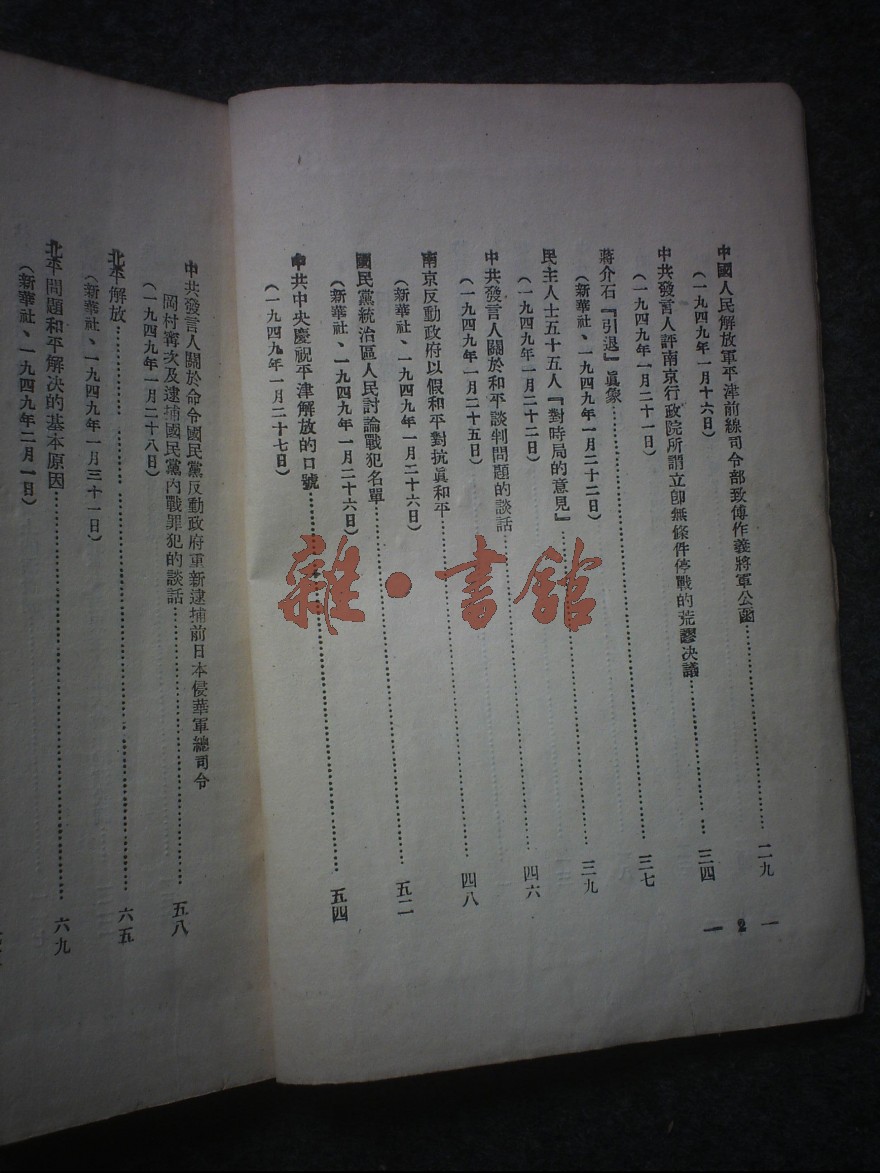 中國人民解放軍平津前線司令部致傅作義將軍公函……二九
(一九四九年一月十六日)
中共發言人評南京行政院所謂立即無條件停戰的荒謬决議……三四
(一九四九年一月二十一日)
蔣介石『引退』眞象……三七
(新華社、一九四九年一月二十二日)
民主人士五十五人『對時局的意見』……三九
(一九四九年一月二十二日)
中共發言人關於和平談判問題的談話……四六
(一九四九年一月二十五日)
南京反動政府以假和平對抗眞和平……四八
(新華社、一九四九年一月二十六日)
國民黨統治區人民討論戰犯名單……五二
(新華社、一九四九年一月二十六日)
中共中央慶祝平津解放的口號……五四
(一九四九年一月二十七日)
— 2 —
中共發言人關於命令國民黨反動政府重新逮捕前日本侵華軍總司令
岡村寗次及逮捕國民黨內戰罪犯的談話……五八
(一九四九年一月二十八日)
北平解放……六五
(新華社、一九四九年一月三十一日)
北平問題和平解决的基本原因……六九
(新華社、一九四九年二月一日)
雜·書館